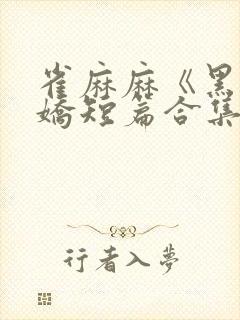 雀麻麻《黑
嬌短篇合集
行者入夢